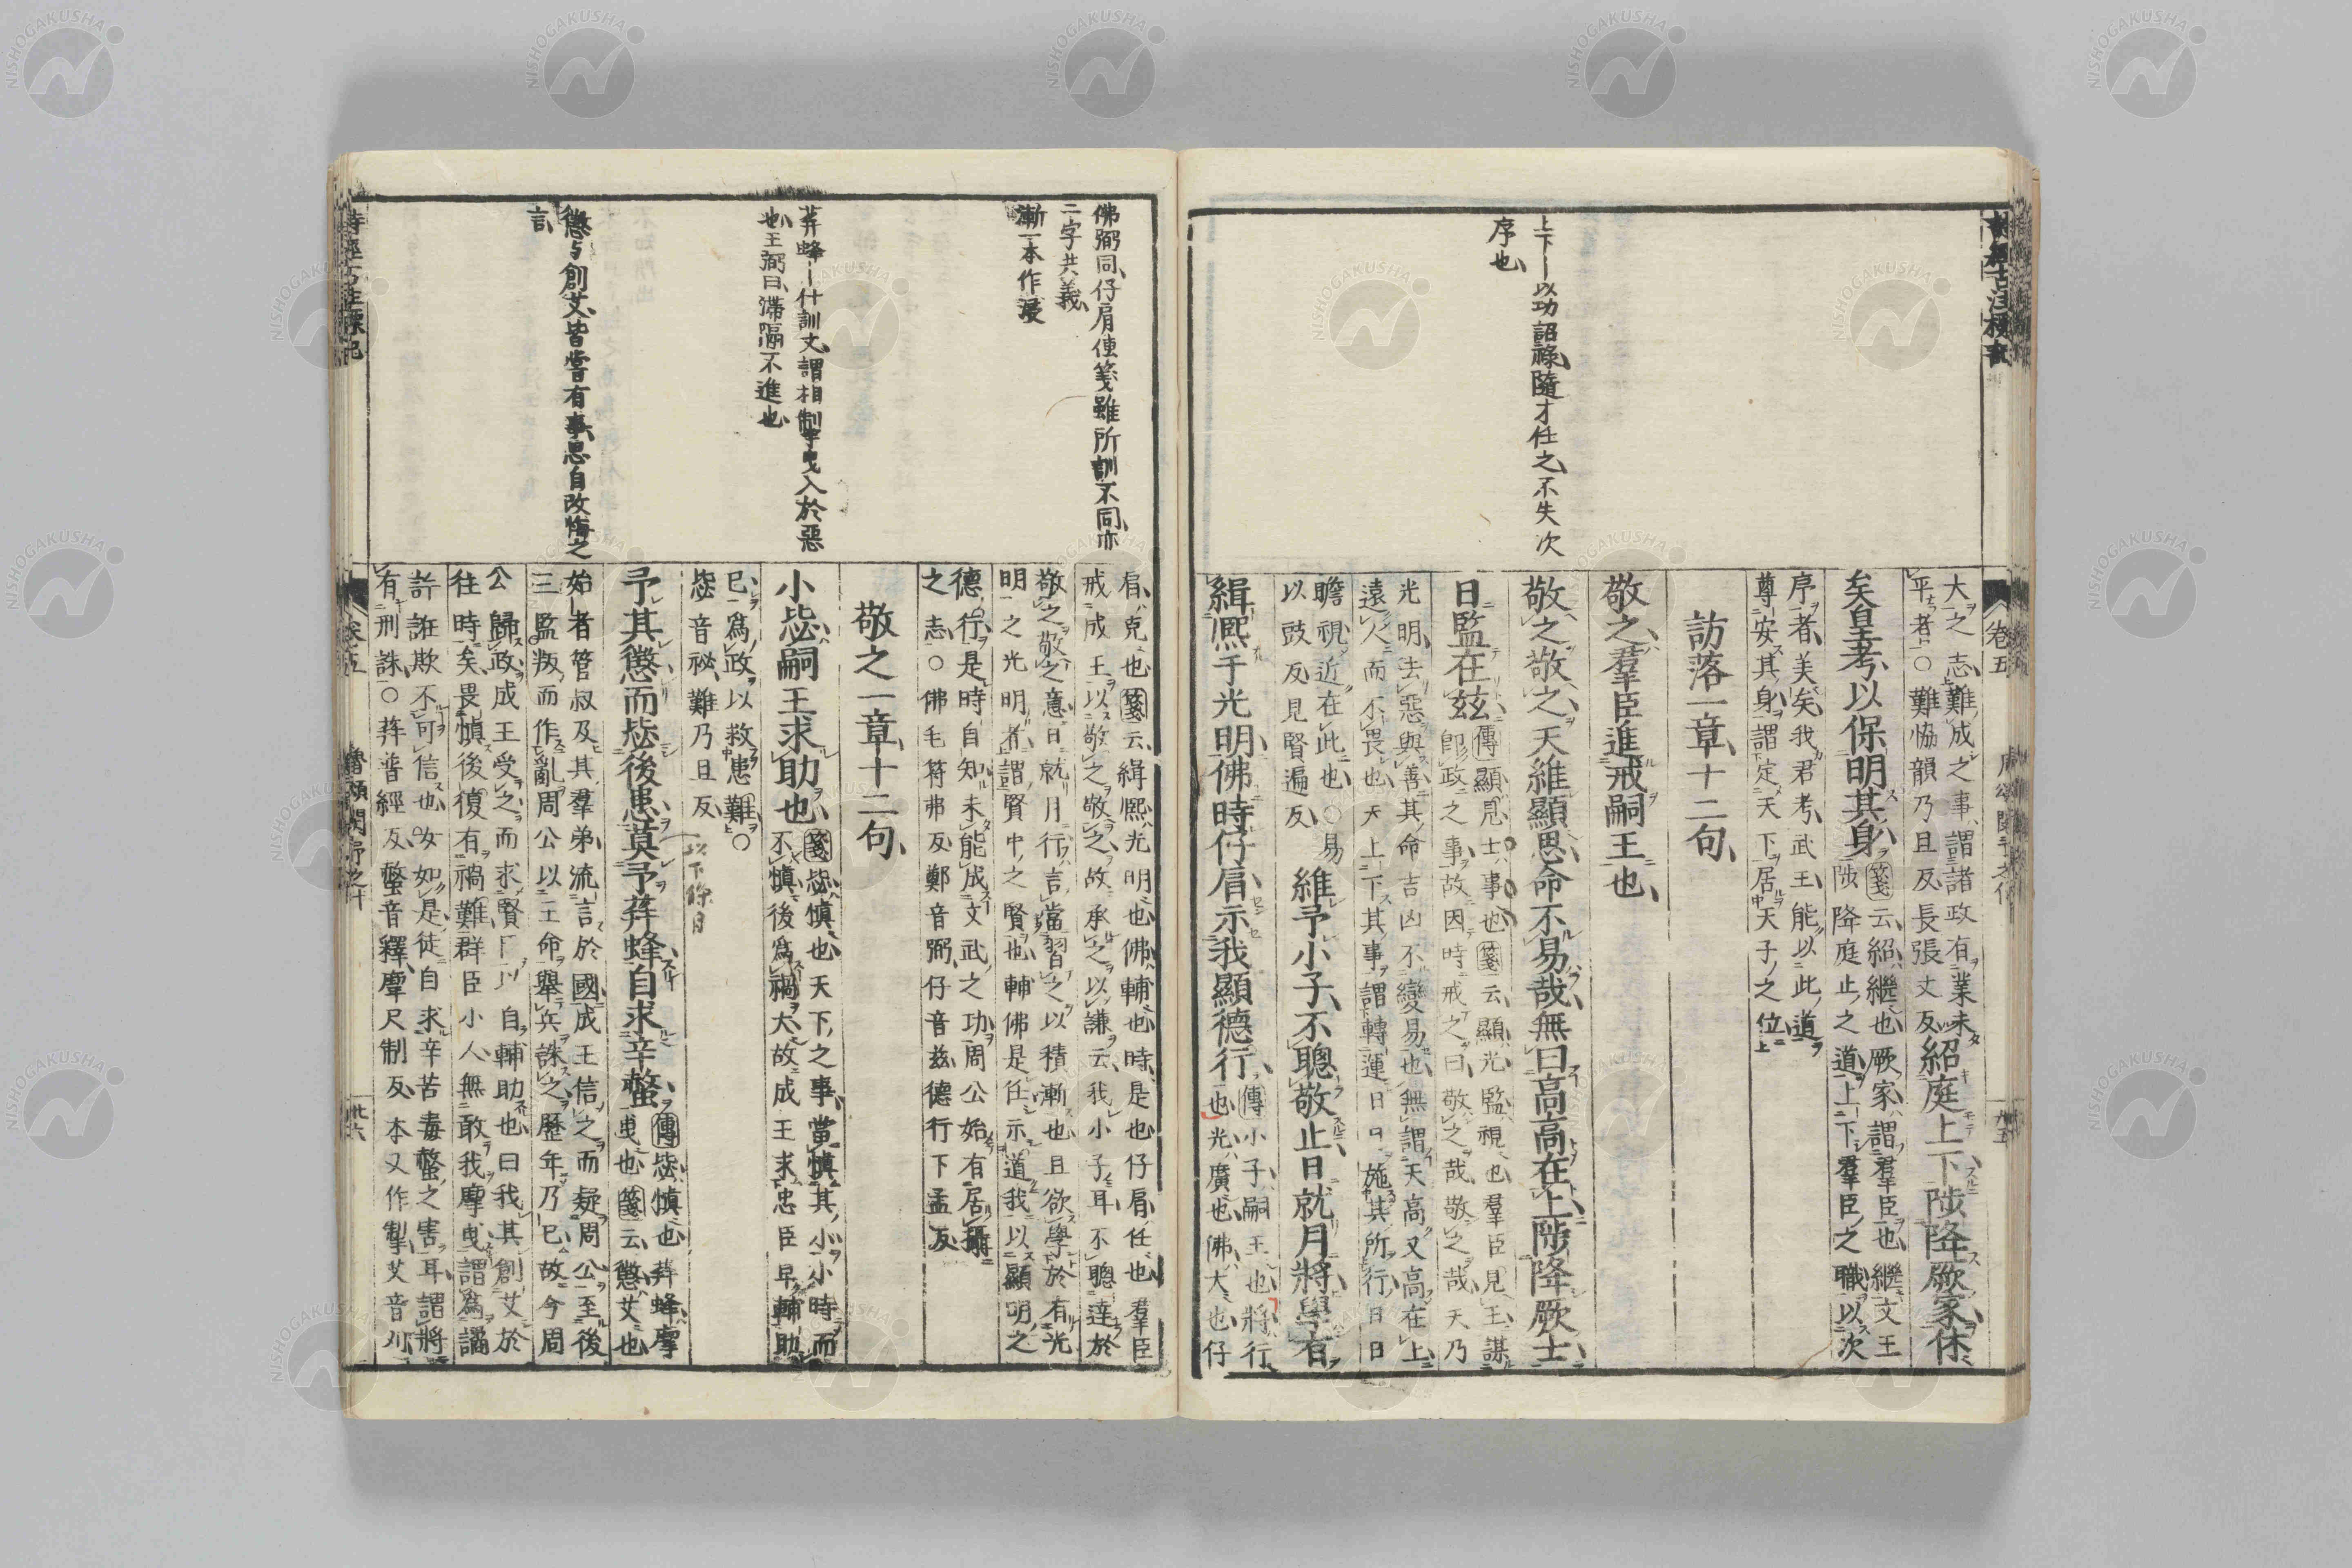 上下―以功詔祿隨才任之不失次
序也
大之志難成之事謂諸政有業未
平者○難協韻乃旦反長張丈反
紹庭上下陟降厥家休
矣皇考以保明其身
箋云紹繼也厥家謂羣臣也繼文王
陟降庭止之道上下羣臣之職以次
序者美矣我君考武王能以此道
尊安其身謂定天下居天子之位
訪落一章十二句
敬之羣臣進戒嗣王也
敬之敬之天維顯思命不易哉無曰高高在上陟降厥士
日監在玆
傳顯見士事也箋云顯光監視也羣臣見王謀
即政之事故因時戒之曰敬之哉敬之哉天乃
光明去惡與善其命吉凶不變易也無謂天高又高在上
遠人而不畏也天上下其事謂轉運日月施其所行日日
瞻視近在此也○易
以豉反見賢遍反
維予小子不聰敬止日就月將學有
緝熙于光明佛時仔肩示我顯德行
傳小子嗣王也將行
也光廣也佛大也仔
卷五
佛弼同仔肩連箋雖所訓不同亦
二字共義
漸一本作浸
荓蜂―什訓文謂相掣曳入於惡
也王弼曰滯隔不進也
懲与創艾皆嘗有事思自改悔之
言
肩克也箋云緝熙光明也佛輔也時是也仔肩任也羣臣
戒成王以敬之敬之故承之以謙云我小子耳不聰達於
敬之敬之意日就月行言當習之以積漸也且欲學於有光
明之光明者謂賢中之賢也輔佛是任示道我以顯明之
德行是時自知未能成文武之功周公始有居攝
之志○佛毛符弗反鄭音弼仔音玆德行下孟反
敬之一章十二句
小毖嗣王求助也
箋毖慎也天下之事當慎其小小時而
不慎後爲禍大故成王求忠臣早輔助
已爲政以救患難○
毖音祕難乃旦反
以下條目
予其懲而毖後患莫予荓蜂自求辛螫
傳毖慎也荓蜂摩
曳也箋云懲艾也
始者管叔及其羣弟流言於國成王信之而疑周公至後
三監叛而作亂周公以王命舉兵誅之歷年乃已故今周
公歸政成王受之而求賢下以自輔助也曰我其創艾於
往時矣畏慎後復有禍難群臣小人無敢我摩曳謂爲譎
詐誑欺不可信也女如是徒自求辛苦毒螫之害耳謂將
有刑誅○荓普經反螫音釋摩尺制反本又作掣艾音刈